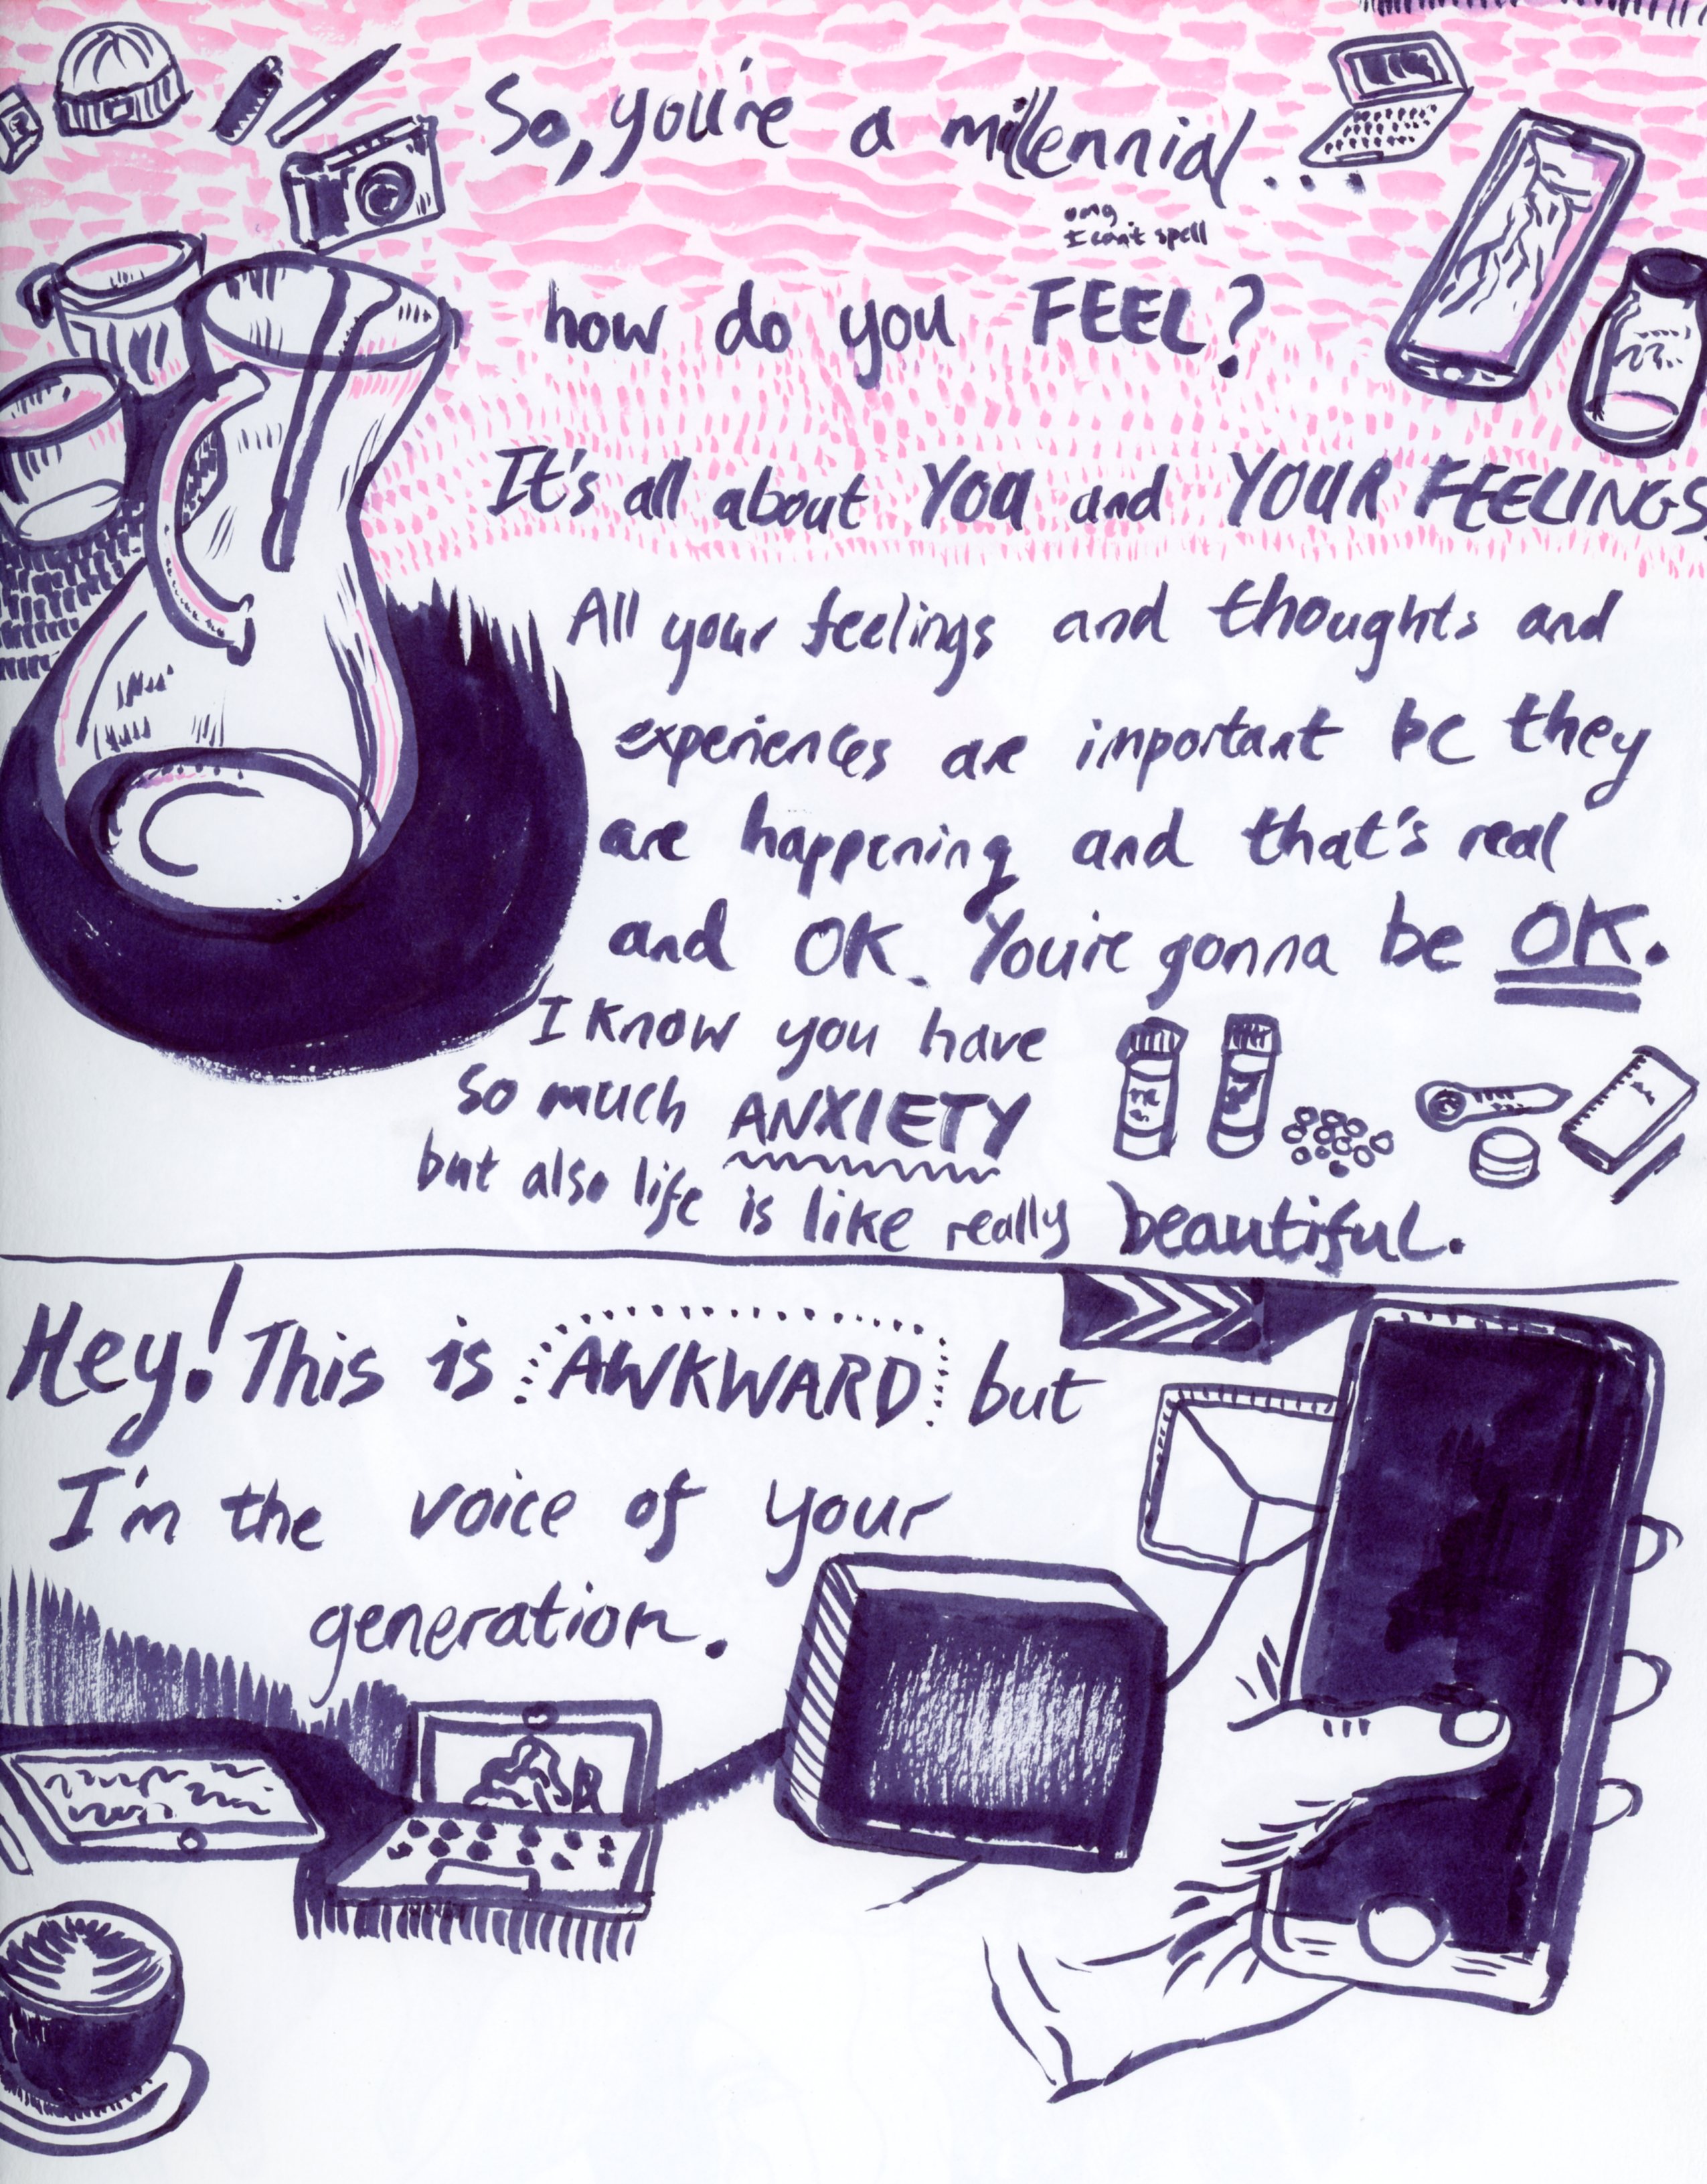 So, you're a millennial...
omg
I can't spell
how do you FEEL?
It's all about YOU and YOUR FEELINGS.
All your feelings and thoughts and
experiences are important bc they
are happening and that's real
and OK. You're gonna be OK.
I know you have
so much ANXIETY
but also life is like really beautiful.
Hey! This is AWKWARD but
I'm the voice of your
generation.